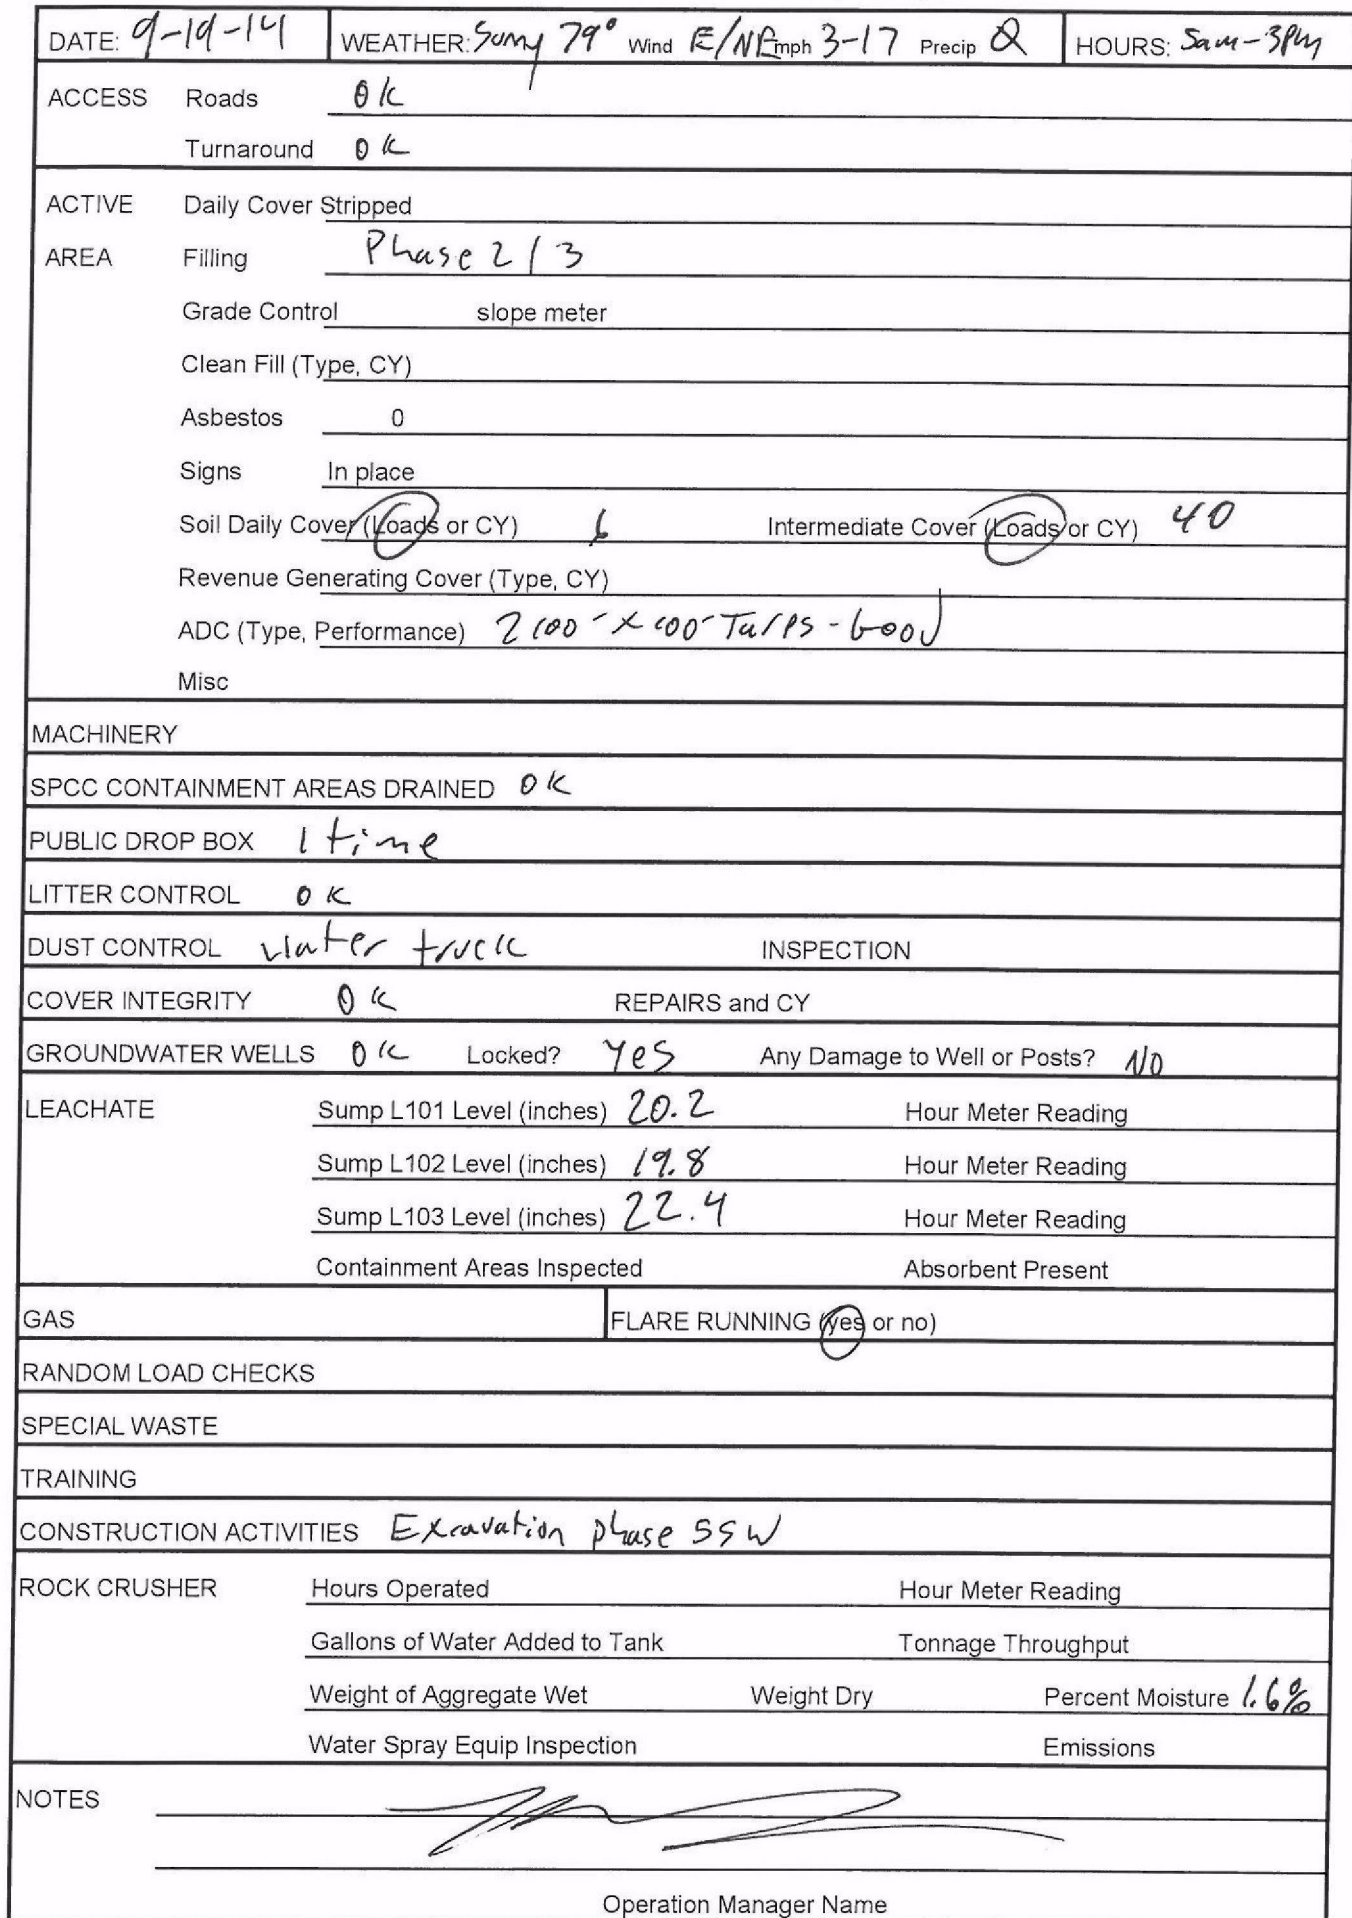 DATE: 9-19-14 WEATHER: Sunny 79° Wind E/NE mph 3-17 Precip 0 HOURS: 5am-3pm
ACCESS Roads OK
Turnaround OK
ACTIVE Daily Cover Stripped
AREA Filling Phase 2/3
Grade Control slope meter
Clean Fill (Type, CY)
Asbestos 0
Signs In place
Soil Daily Cover (Loads or CY) 6 Intermediate Cover (Loads or CY) 40
Revenue Generating Cover (Type, CY)
ADC (Type, Performance) 2 100' x 100' Tarps - Good
Misc
MACHINERY
SPCC CONTAINMENT AREAS DRAINED OK
PUBLIC DROP BOX 1 time
LITTER CONTROL OK
DUST CONTROL water truck INSPECTION
COVER INTEGRITY OK REPAIRS and CY
GROUNDWATER WELLS OK Locked? Yes Any Damage to Well or Posts? NO
LEACHATE Sump L101 Level (inches) 20.2 Hour Meter Reading
Sump L102 Level (inches) 19.8 Hour Meter Reading
Sump L103 Level (inches) 22.4 Hour Meter Reading
Containment Areas Inspected Absorbent Present
GAS FLARE RUNNING (yes or no)
RANDOM LOAD CHECKS
SPECIAL WASTE
TRAINING
CONSTRUCTION ACTIVITIES Excavation phase 5SW
ROCK CRUSHER Hours Operated Hour Meter Reading
Gallons of Water Added to Tank Tonnage Throughput
Weight of Aggregate Wet Weight Dry Percent Moisture 1.6%
Water Spray Equip Inspection Emissions
NOTES
Operation Manager Name